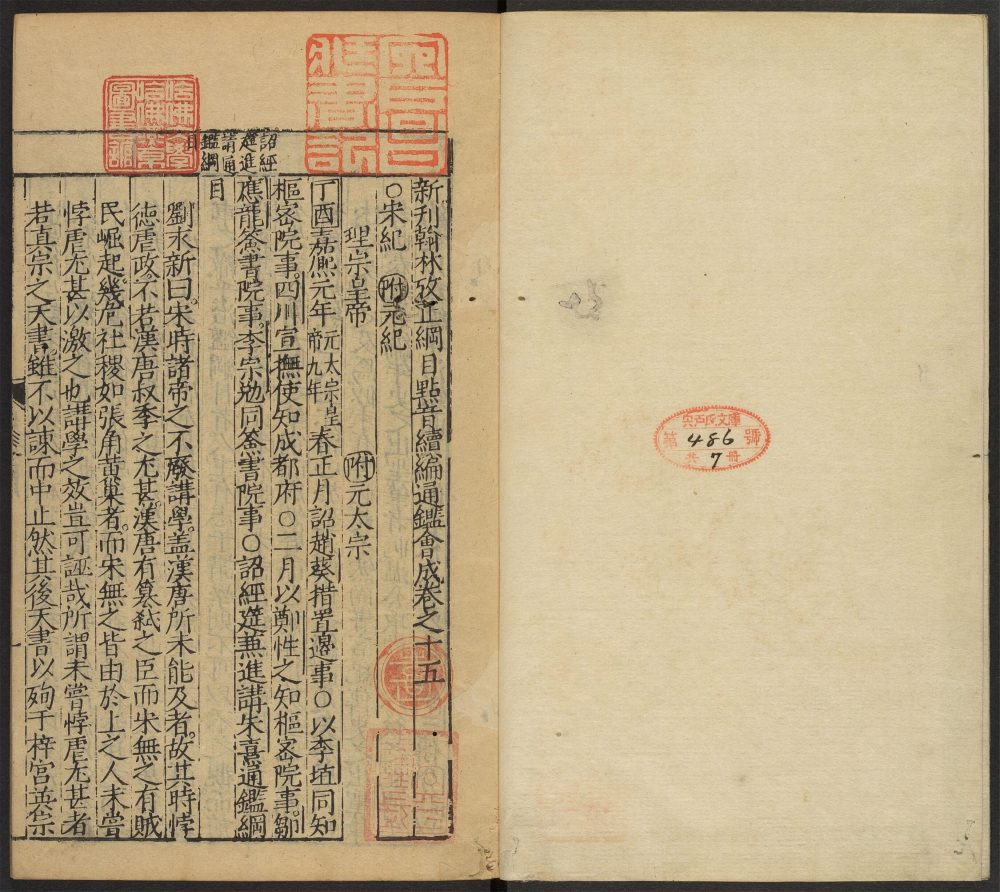 宍戸氏文庫
第 486 號
共 7 冊
新刊翰林攷正綱目點音續編通鑑會成卷之十五
○宋紀 附元紀
理宗皇帝 附元太宗
丁酉嘉熈元年 元太宗皇帝九年 春正月詔趙葵措置邊事○以李埴同知
樞密院事四川宣撫使知成都府○二月以鄭性之知樞密院事鄒
應龍簽書院事李宗勉同簽書院事○詔經筵兼進講朱熹通鑑綱
目
詔經
筵進
講通
鑑綱
目
劉永新曰宋時諸帝之不廢講學蓋漢唐所未能及者故其時悖
徳虐政不若漢唐叔季之尤甚漢唐有簒弑之臣而宋無之有賊
民崛起幾危社稷如張角黄巢者而宋無之皆由於上之人未嘗
悖虐尤甚以激之也講學之效豈可誣哉所謂未嘗悖虐尤甚者
若真宗之天書雖不以諫而中止然其後天書以殉于梓宫英宗